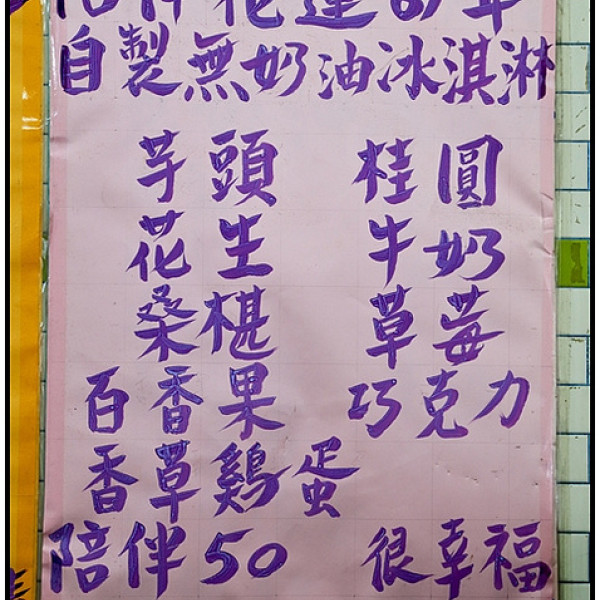 陪伴花蓮67年
自製無奶油冰淇淋
芋頭 桂圓
花生 牛奶
桑椹 草莓
百香果 巧克力
香草雞蛋
陪伴50 很幸福